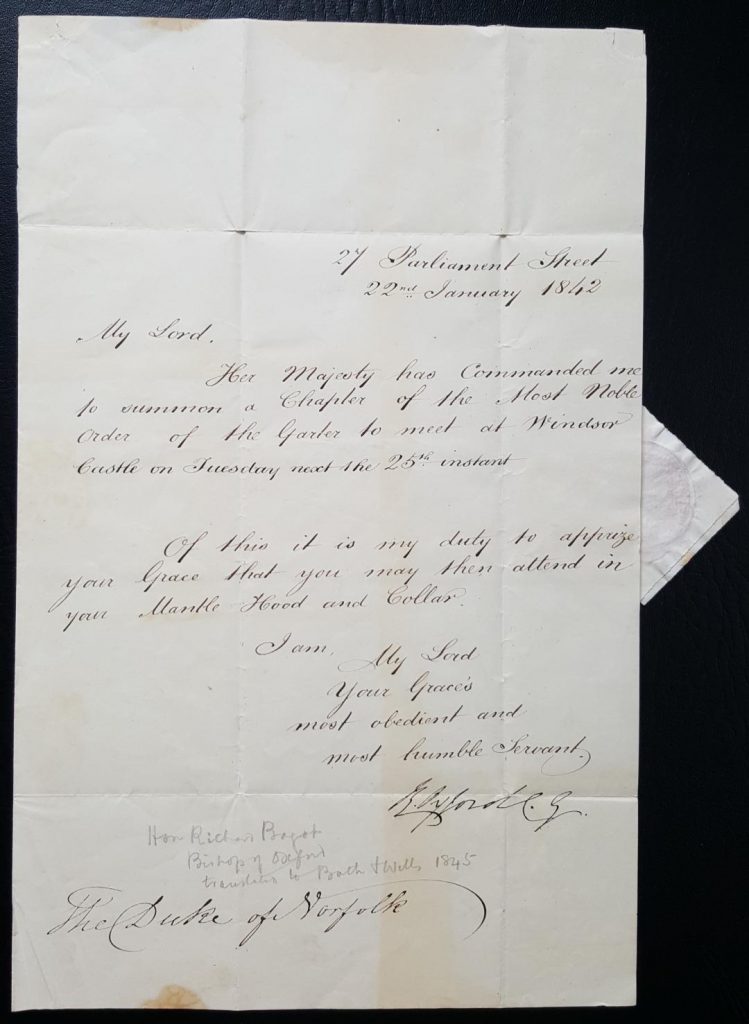 27 Parliament Street
22nd January 1842
My Lord.
Her Majesty has Commanded me
to summon a Chapter of the Most Noble
Order of the Garter to meet at Windsor
Castle on Tuesday next the 25th instant
Of this it is my duty to apprize
your Grace that you may then attend in
your Mantle Hood and Collar.
I am, My Lord
Your Grace's
most obedient and
most humble Servant.
R. Oxford C. G.
Hon Richard Bagot
Bishop of Oxford
translated to Bath & Wells 1845
The Duke of Norfolk